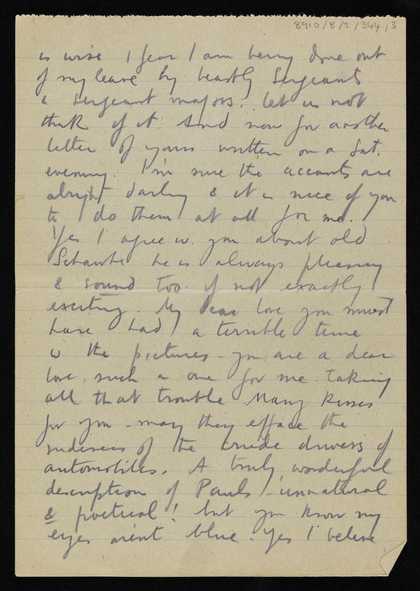 8910/8/2/344/3
is wise I fear I am being done out
of my leave by beastly Sergeants
& Sergeant majors. let us not
think of it. And now for another
letter of yours written on a Sat.
evening. I'm sure the accounts are
alright darling & it is nice of you
to do them at all for me.
Yes I agree w. you about old
he is always pleasing
& sound too if not exactly
exciting. My dear love you must
have had a terrible time
w the pictures - you are a dear
love, such a one for me taking
all that trouble Many kisses
for you - may they efface the
rudeness of the crude drivers of
automobiles. A truly wonderful
description of Pauls - unnatural
& poetical! but you know my
eyes aren't blue! Yes I believe